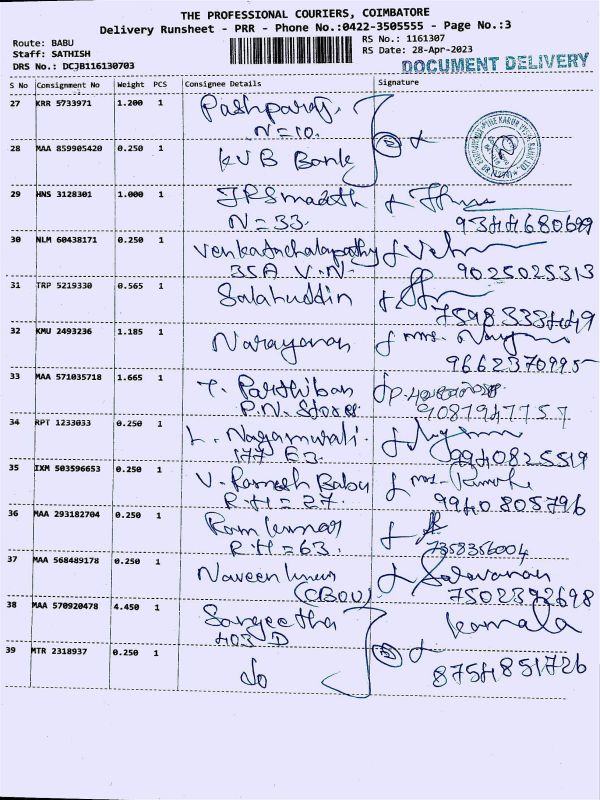 THE PROFESSIONAL COURIERS, COIMBATORE
Delivery Runsheet - PRR - Phone No.:0422-3505555 - Page No.:3
Route: BABU
Staff: SATHISH
DRS No.: DCJB116130703
RS No.: 1161307
RS Date: 28-Apr-2023
DOCUMENT DELIVERY
S No Consignment No Weight PCS Consignee Details Signature
27 KRR 5733971 1.200 1
N=10.
28 MAA 859905420 0.250 1 KVB Bank
29 HNS 3128301 1.000 1
N=33. 9344680699
30 NLM 60438171 0.250 1 Venkatachalapathy
35A V.N. 9025025313
31 TRP 5219330 0.565 1 Salahuddin
7598333449
32 KMU 2493236 1.185 1 Narayanan mrs.
9662370995
33 MAA 571035718 1.665 1 T. Parthiban
P.N. Stores 9087947757
34 RPT 1233033 0.250 1
177 E3. 9940825519
35 IXM 503596653 0.250 1 V. Ramesh Babu mrs.
R.H = 27. 9940805796
36 MAA 293182704 0.250 1 Ramkumar
R.H = 63. 7358356004
37 MAA 568489178 0.250 1 Naveenkumar Saravanan
(CBOU) 7502392698
38 MAA 570920478 4.450 1 Sangeetha Kamala
403 D
39 MTR 2318937 0.250 1 do 8754851726